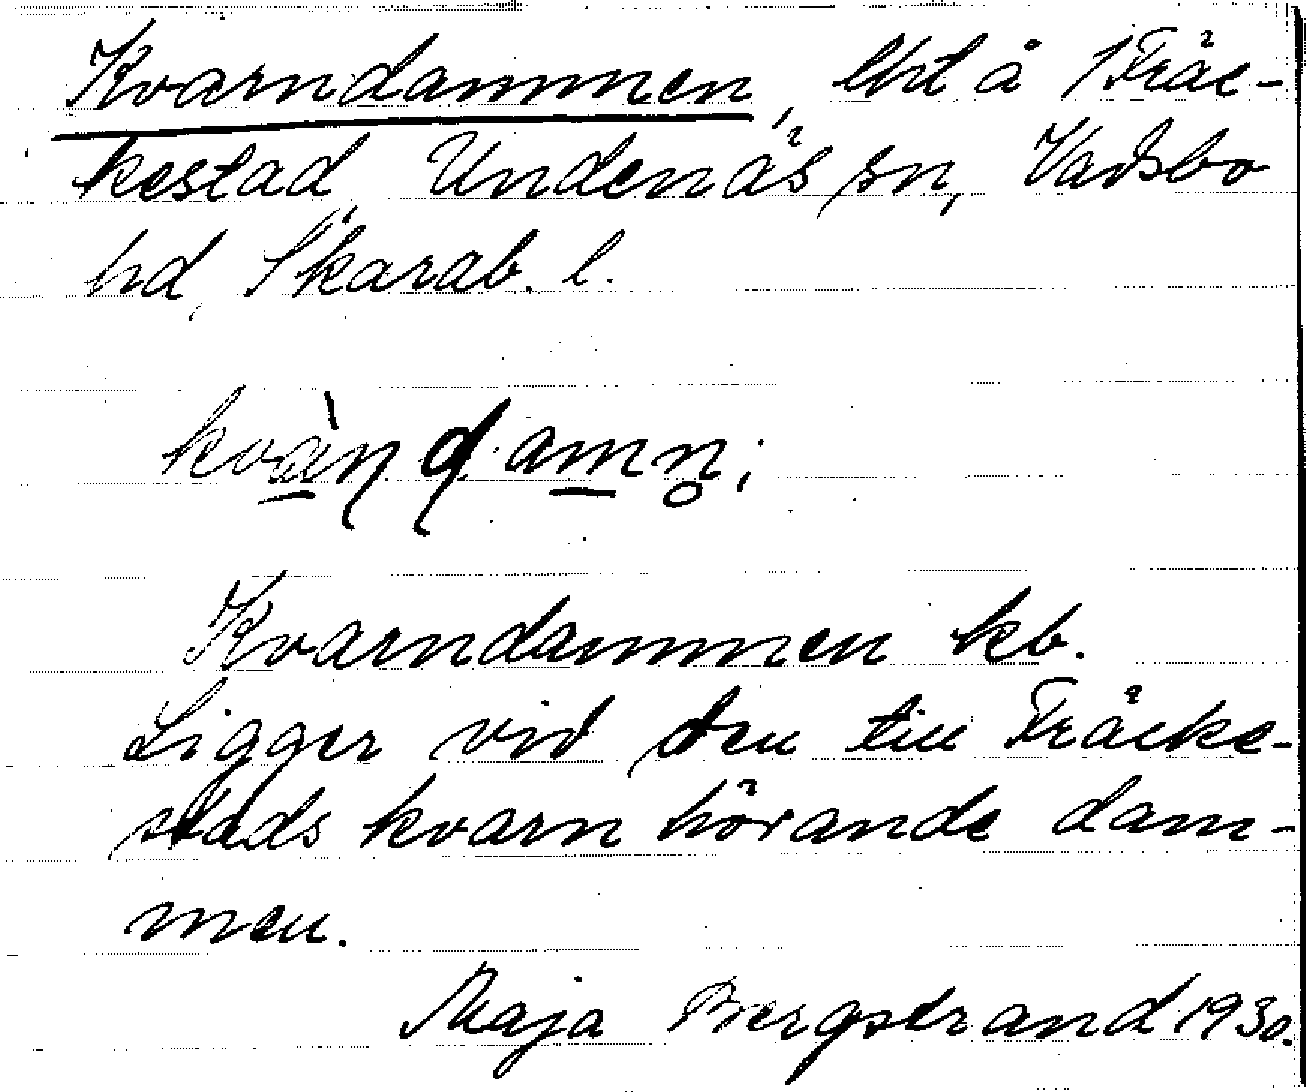 Kvarndammen, lht å 1 Fräc-
kestad Undenäs sn, Vadsbo
hd, Skarab. l.
kvàṇḍamn̥;
Kvarndammen kb.
Ligger vid den till Fräcke-
stads kvarn hörande dam-
men.
Maja Bergstrand 1930.